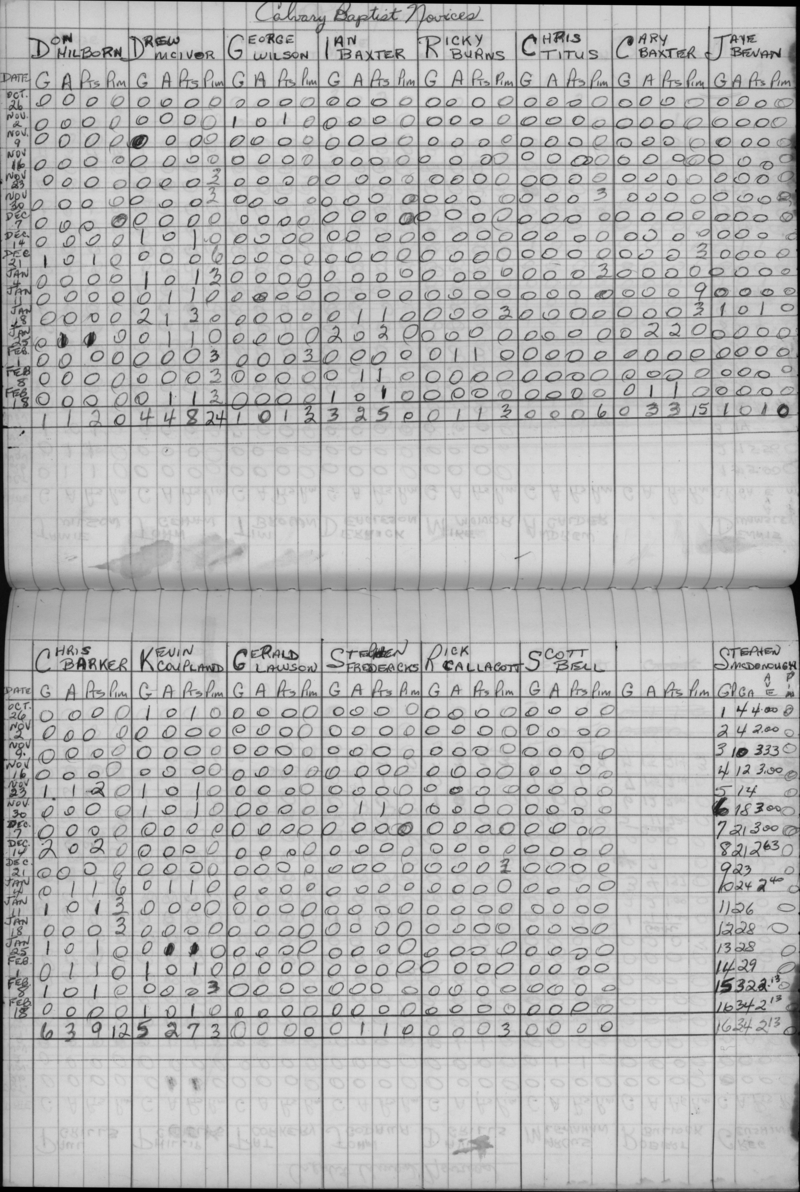 Calvary Baptist Novices
DON HILBORN DREW MCIVOR GEORGE WILSON IAN BAXTER RICKY BURNS CHRIS TITUS CARY BAXTER JAYE BEVAN
DATE G A Pts Pim G A Pts Pim G A Pts Pim G A Pts Pim G A Pts Pim G A Pts Pim G A Pts Pim G A Pts Pim
OCT. 26 0 0 0 0 0 0 0 0 0 0 0 0 0 0 0 0 0 0 0 0 0 0 0 0 0 0 0 0 0 0 0 0
NOV. 2 0 0 0 0 0 0 0 0 1 0 1 0 0 0 0 0 0 0 0 0 0 0 0 0 0 0 0 0 0 0 0 0
NOV. 9 0 0 0 0 0 0 0 0 0 0 0 0 0 0 0 0 0 0 0 0 0 0 0 0 0 0 0 0 0 0 0
NOV 16 0 0 0 0 0 0 0 0 0 0 0 0 0 0 0 0 0 0 0 0 0 0 0 0 0 0 0 0 0 0 0 0
NOV 23 0 0 0 0 0 0 0 3 0 0 0 0 0 0 0 0 0 0 0 0 0 0 0 0 0 0 0 0 0 0 0 0
NOV 30 0 0 0 0 0 0 0 3 0 0 0 0 0 0 0 0 0 0 0 0 0 0 0 3 0 0 0 0 0 0 0 0
DEC 7 0 0 0 0 0 0 0 0 0 0 0 0 0 0 0 0 0 0 0 0 0 0 0 0 0 0 0 0 0 0 0 0
DEC. 14 0 0 0 0 1 0 1 0 0 0 0 0 0 0 0 0 0 0 0 0 0 0 0 0 0 0 0 0 0 0 0 0
DEC 21 1 0 1 0 0 0 0 6 0 0 0 0 0 0 0 0 0 0 0 0 0 0 0 0 0 0 0 3 0 0 0 0
JAN 4 0 0 0 0 1 0 1 3 0 0 0 0 0 0 0 0 0 0 0 0 0 0 0 3 0 0 0 0 0 0 0 0
JAN 11 0 0 0 0 0 1 1 0 0 0 0 0 0 0 0 0 0 0 0 0 0 0 0 0 0 0 0 9 0 0 0 0
JAN 18 0 0 0 0 2 1 3 0 0 0 0 0 0 1 1 0 0 0 0 3 0 0 0 0 0 0 0 3 1 0 1 0
JAN 25 0 1 1 0 0 1 1 0 0 0 0 0 2 0 2 0 0 0 0 0 0 0 0 0 0 2 2 0 0 0 0 0
FEB. 1 0 0 0 0 0 0 0 3 0 0 0 3 0 0 0 0 0 1 1 0 0 0 0 0 0 0 0 0 0 0 0 0
FEB 8 0 0 0 0 0 0 0 3 0 0 0 0 0 1 1 0 0 0 0 0 0 0 0 0 0 0 0 0 0 0 0 0
FEB 18 0 0 0 0 0 1 1 3 0 0 0 0 1 0 1 0 0 0 0 0 0 0 0 0 0 1 1 0 0 0 0 0
1 1 2 0 4 4 8 24 1 0 1 3 3 2 5 0 0 1 1 3 0 0 0 6 0 3 3 15 1 0 1 0
CHRIS BARKER KEVIN COUPLAND GERALD LAWSON STEPHEN FREDERICKS RICK CALLAGOTT SCOTT BELL STEPHEN MCDONOUGH
DATE G A Pts Pim G A Pts Pim G A Pts Pim G A Pts Pim G A Pts Pim G A Pts Pim G A Pts Pim GP GA A E PIM
OCT. 26 0 0 0 0 1 0 1 0 0 0 0 0 0 0 0 0 0 0 0 0 0 0 0 0 1 4 4.00 0
NOV 2 0 0 0 0 0 0 0 0 0 0 0 0 0 0 0 0 0 0 0 0 0 0 0 0 2 4 2.00 0
NOV 9. 0 0 0 0 0 0 0 0 0 0 0 0 0 0 0 0 0 0 0 0 0 0 0 0 3 10 333 0
NOV 16 0 0 0 0 0 0 0 0 0 0 0 0 0 0 0 0 0 0 0 0 0 0 0 0 4 12 3.00 0
NOV 23 1 1 2 0 1 0 1 0 0 0 0 0 0 0 0 0 0 0 0 0 0 0 0 0 5 14 0
NOV. 30 0 0 0 0 1 0 1 0 0 0 0 0 0 1 1 0 0 0 0 0 0 0 0 0 6 18 300 0
DEC. 7 0 0 0 0 0 0 0 0 0 0 0 0 0 0 0 0 0 0 0 0 0 0 0 0 7 21 300 0
DEC. 14 2 0 2 0 0 0 0 0 0 0 0 0 0 0 0 0 0 0 0 0 0 0 0 0 8 21 263 0
DEC. 21 0 0 0 0 0 0 0 0 0 0 0 0 0 0 0 0 0 0 0 3 0 0 0 0 9 23 0
JAN 4 0 1 1 6 0 1 1 0 0 0 0 0 0 0 0 0 0 0 0 0 0 0 0 0 10 24 240 0
JAN 11 1 0 1 3 0 0 0 0 0 0 0 0 0 0 0 0 0 0 0 0 0 0 0 0 11 26 0
JAN 18 0 0 0 3 0 0 0 0 0 0 0 0 0 0 0 0 0 0 0 0 0 0 0 0 12 28 0
JAN 25 1 0 1 0 0 1 1 0 0 0 0 0 0 0 0 0 0 0 0 0 0 0 0 0 13 28 0
FEB. 1 0 1 1 0 1 0 1 0 0 0 0 0 0 0 0 0 0 0 0 0 0 0 0 0 14 29 0
FEB. 8 1 0 1 0 0 0 0 3 0 0 0 0 0 0 0 0 0 0 0 0 0 0 0 15 32 2.13 0
FEB 18 0 0 0 0 1 0 1 0 0 0 0 0 0 0 0 0 0 0 0 0 0 0 0 0 16 34 213 0
6 3 9 12 5 2 7 3 0 0 0 0 0 1 1 0 0 0 0 3 0 0 0 0 16 34 213 0